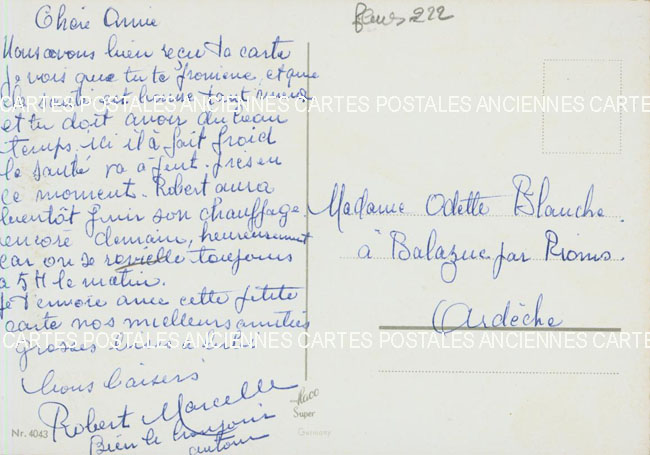 fleurs 222
Chère Annie
Nous avons bien reçu ta carte
je vois que tu te promène, et que
la santé est bonne tant mieux
CARTES POSTALES ANCIENNES CARTES POSTALES ANCIENNES CARTES
et tu doit avoir du beau
temps. ici il à fait froid
la santé va à peut près en
ce moment. Robert aura
bientôt finir son chauffage
encore demain, heureusement
car on se reveille toujours
a 5H le matin.
je t'envoie avec cette petite
carte nos meilleurs amitiés
CARTES POSTALES ANCIENNES CARTES POSTALES ANCIENNES CARTES
grosses
bons baisers
Robert Marcelle
Bien le bonjour
autour
Madame Odette Blanche.
à Balazuc par Rioms.
Ardèche
Nr. 4043
Super
Germany